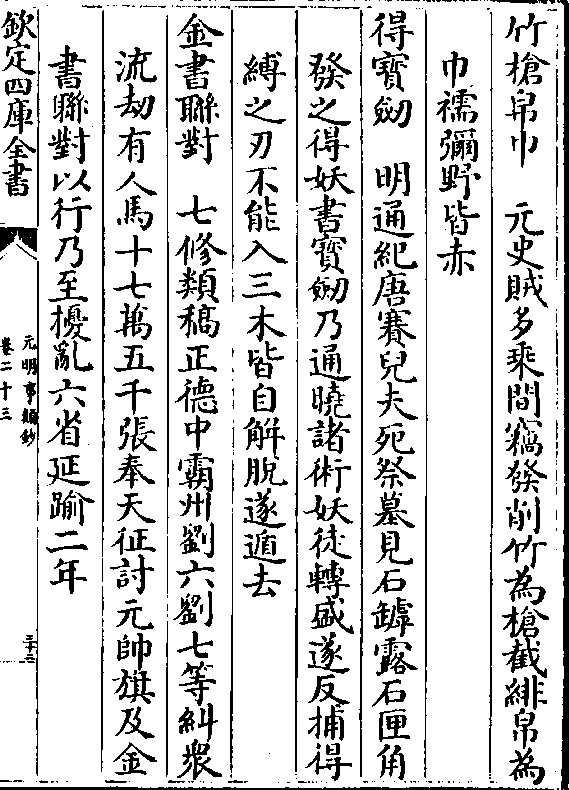 竹槍帛巾　元史賊多乘間竊發削竹為槍截緋帛為
巾襦彌野皆赤
得寶劒　明通紀唐賽兒夫死祭墓見石罅露石匣角
發之得妖書寶劒乃通曉諸術妖徒轉盛遂反捕得
縛之刃不能入三木皆自解脱遂遁去
金書聯對　七修類稿正德中霸州劉六劉七等糾衆
流刼有人馬十七萬五千張奉天征討元帥旗及金
書聯對以行乃至擾亂六省延踰二年
欽定四庫全書
元明事類鈔
卷二十三
三十三